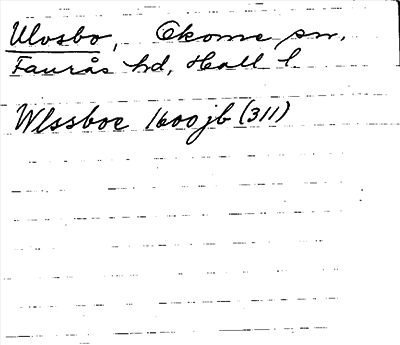 Ulvsbo, Okome sn,
Faurås hd, Hall l.
Wlssboe 1600 jb (311)